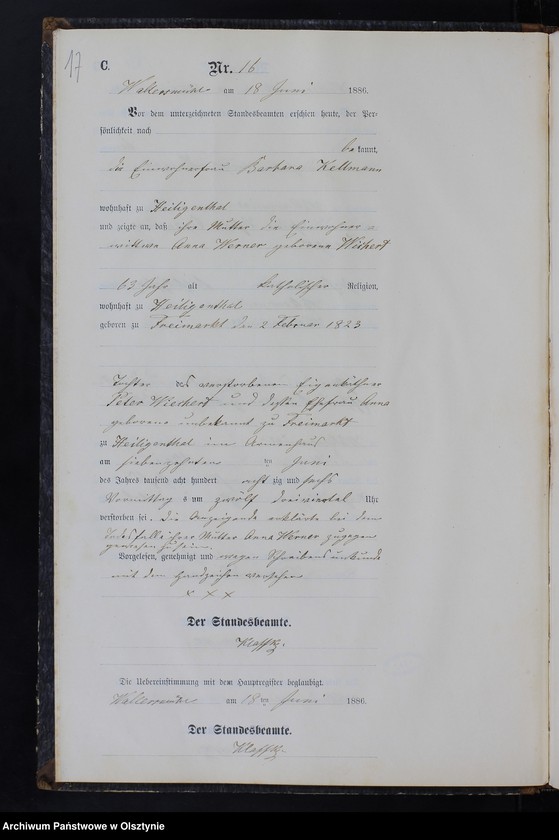 17
C.
Nr. 16
Waltersmühl am 18 Juni 1886.
Vor dem unterzeichneten Standesbeamten erschien heute, der Per-
sönlichkeit nach
bekannt,
die Einwohnerfrau Barbara Kellmann
wohnhaft zu Heiligenthal
und zeigte an, daß ihre Mutter die Einwohner-
wittwe Anna Werner geborene Weichert
63 Jahr alt katholischer Religion,
wohnhaft zu Heiligenthal
geboren zu Freimarkt den 2 Februar 1823
Tochter des verstorbenen Eigenkäthner
Peter Wiechert und dessen Ehefrau Anna
geborene unbekannt zu Freimarkt
zu Heiligenthal im Armenhaus
am siebenzehnten ten Juni
des Jahres tausend acht hundert acht zig und sechs
Vormittag s um zwölf dreiviertel Uhr
verstorben sei. Die Anzeigende erklärte bei dem
Todesfalle ihrer Mutter Anna Werner zugegen
gewesen zu sein.
Vorgelesen, genehmigt und wegen Schreibensunkunde
mit dem Handzeichen versehen
x x x
Der Standesbeamte.
Die Uebereinstimmung mit dem Hauptregister beglaubigt.
Waltersmühl am 18 ten Juni 1886.
Der Standesbeamte.
Archiwum Państwowe w Olsztynie